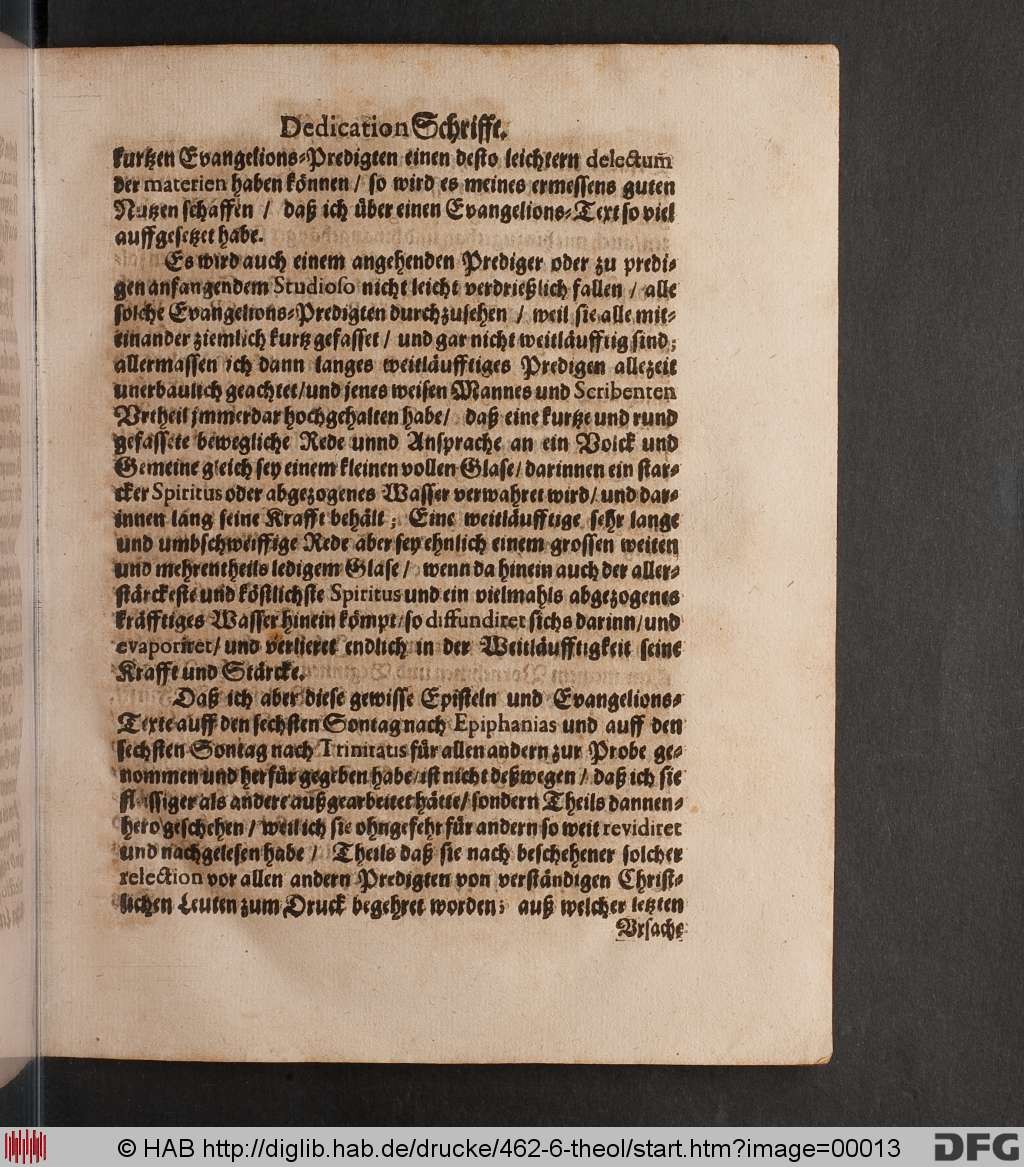 Dedication Schrifft.
kurtzen Evangelions-Predigten einen desto leichtern delectum̃
der materien haben können / so wird es meines ermessens guten
Nutzen schaffen / daß ich über einen Evangelions-Text so viel
auffgesetzet habe.
Es wird auch einem angehenden Prediger oder zu predi-
gen anfangendem Studioso nicht leicht verdrießlich fallen / alle
solche Evangelions-Predigten durchzusehen / weil sie alle mit-
einander ziemlich kurtz gefasset / und gar nicht weitläufftig sind;
allermassen ich dann langes weitläufftiges Predigen allezeit
unerbaulich geachtet/und jenes weisen Mannes und Scribenten
Vrtheil jmmerdar hochgehalten habe/ daß eine kurtze und rund
gefassete bewegliche Rede unnd Ansprache an ein Volck und
Gemeine gleich sey einem kleinen vollen Glase/ darinnen ein star-
cker Spiritus oder abgezogenes Wasser verwahret wird/ und dar-
innen lang seine Krafft behält; Eine weitläufftige sehr lange
und umbschweiffige Rede aber sey ehnlich einem grossen weiten
und mehrentheils ledigem Glase/ wenn da hinein auch der aller-
stärckeste und köstlichste Spiritus und ein vielmahls abgezogenes
kräfftiges Wasser hinein kömpt/so diffundiret sichs darinn/und
evaporiret/ und verlieret endlich in der Weitläufftigkeit seine
Krafft und Stärcke.
Daß ich aber diese gewisse Episteln und Evangelions-
Texte auff den sechsten Sontag nach Epiphanias und auff den
sechsten Sontag nach Trinitatis für allen andern zur Probe ge-
nommen und herfür gegeben habe/ist nicht deßwegen / daß ich sie
fleissiger als andere außgearbeitet hätte/ sondern Theils dannen-
hero geschehen / weil ich sie ohngefehr für andern so weit revidiret
und nachgelesen habe / Theils daß sie nach beschehener solcher
relection vor allen andern Predigten von verständigen Christ-
lichen Leuten zum Druck begehret worden; auß welcher letzten
Vrsache
© HAB http://diglib.hab.de/drucke/462-6-theol/start.htm?image=00013
DFG